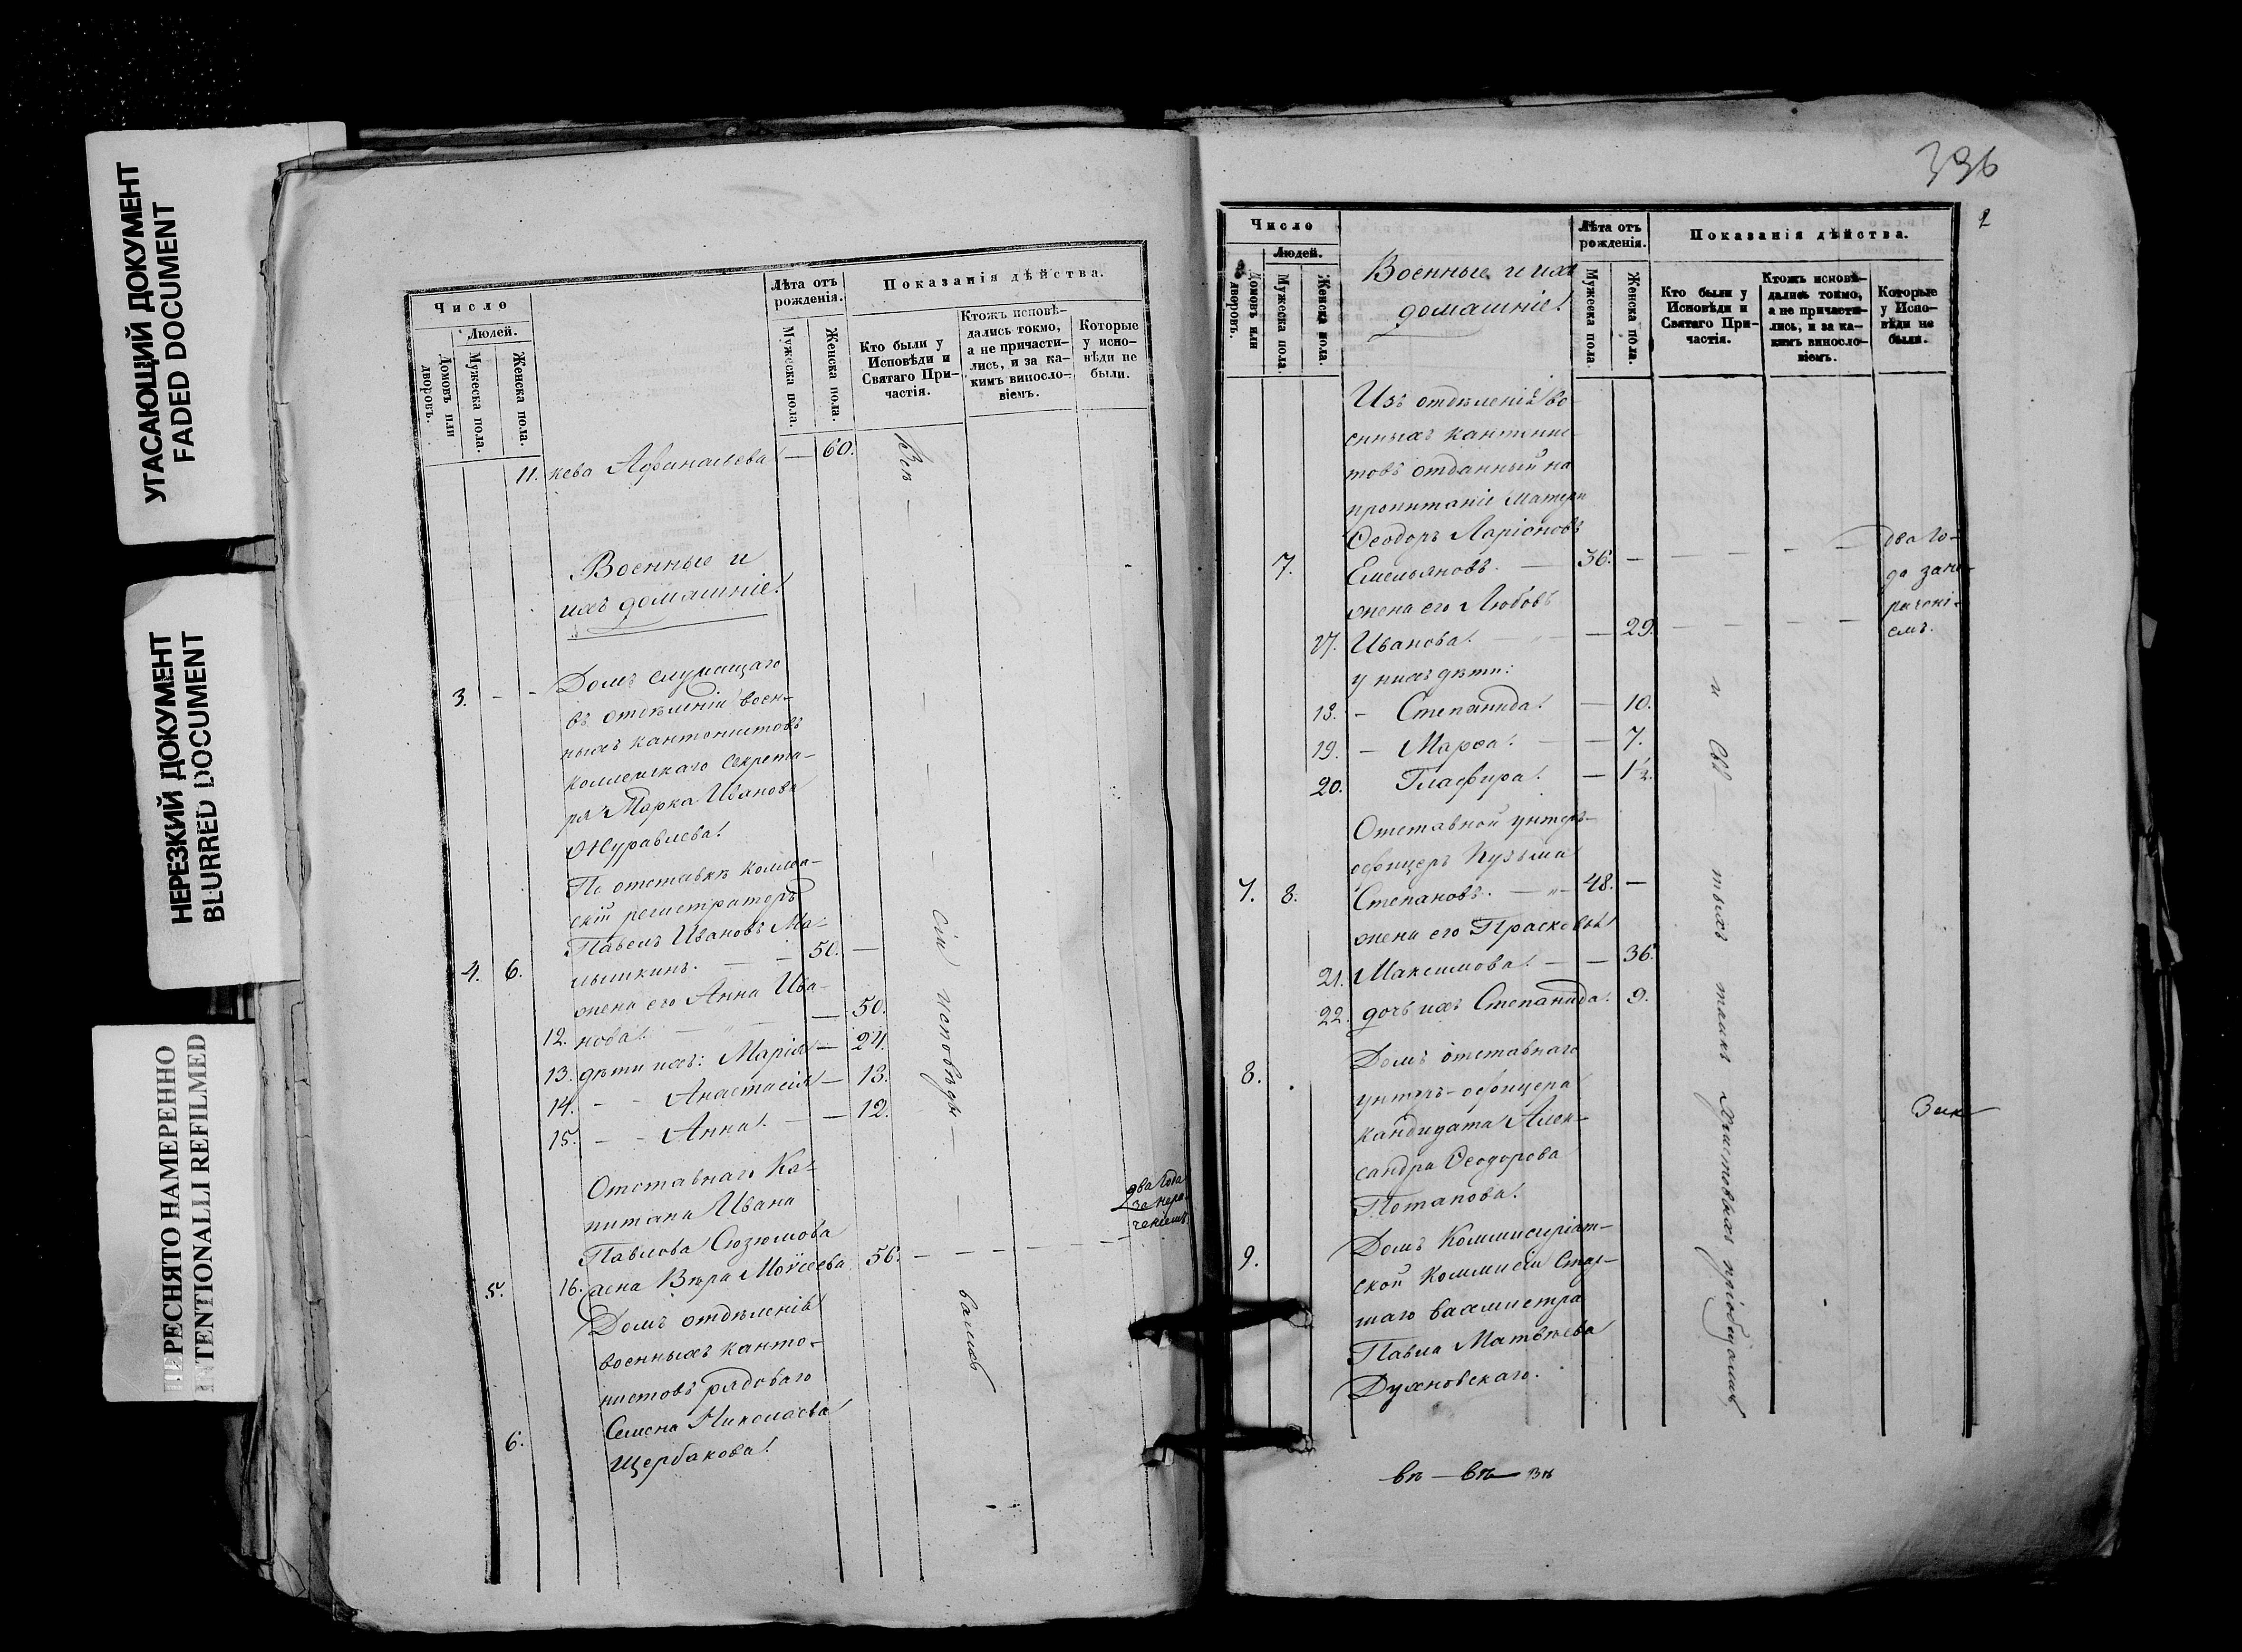 УГАСАЮЩИЙ ДОКУМЕНТ
FADED DOCUMENT
НЕРЕЗКИЙ ДОКУМЕНТ
BLURRED DOCUMENT
ПЕРЕСНЯТО НАМЕРЕННО
INTENTIONALLI REFILMED
Число
Людей.
Домовъ или дворовъ.
Мужеска пола.
Женска пола.
Лѣта отъ рожденія.
Мужеска пола.
Женска пола.
Показанія дѣйства.
Кто были у Исповѣди и Святаго При-частія.
Ктожъ исповѣ-дались токмо, а не причасти-лись, и за ка-кимъ виносло-віемъ.
Которые у испо-вѣди не были.
11. кева Афанасьева — 60.
Военные и
ихъ домашніе.
3. - - Домъ служащаго
въ отдѣленіи воен-
ныхъ кантонистовъ
коллежскаго секрета-
ря Марка Иванова
Журавлева.
По отставкѣ коллеж-
скій регистраторъ
Павелъ Ивановъ Ма-
4. 6. лышкинъ. — 50. —
жена его Анна Ива-
12. нова. — — 50.
13. дѣти ихъ: Марія — 24.
14. - - Анастасія — 13.
15. - - Анна. — 12.
Отставнаго Ка-
питана Ивана
Павлова Сюзюмова
5. 16. жена Вѣра Моисеева 56. — — — — —
два года
за нера-
ченіемъ.
Домъ отдѣленія
военныхъ канто-
нистовъ рядоваго
Семена Николаева
6. Щербакова.
Всѣ — — — — — — сіи исповѣда — — вались
396
2
Число
Людей.
Домовъ или дворовъ.
Мужеска пола.
Женска пола.
Военные и ихъ
домашніе.
Лѣта отъ рожденія.
Мужеска пола.
Женска пола.
Показанія дѣйства.
Кто были у Исповѣди и Святаго При-частія.
Ктожъ исповѣ-дались токмо, а не причасти-лись, и за ка-кимъ виносло-віемъ.
Которые у Испо-вѣди не были.
Изъ отдѣленія во-
енныхъ кантонис-
товъ отданный на
пропитаніе матери
Ѳеодоръ Ларіоновъ
7. Емельяновъ. — 36. — — — — — —
два го-
да за не-
рачені-
емъ.
жена его Любовь
17. Иванова. — — 29. — — — —
у нихъ дѣти:
18. - Степанида. — 10.
19. - Марѳа. — — 7.
20. Глафира. — 1½.
Отставной унтеръ-
офицеръ Кузьма
7. 8. Степановъ. — 48. —
жена его Прасковья
21. Максимова. — — 36.
22. дочь ихъ Степанида. 9.
8. Домъ отставнаго
унтеръ-офицера
кандидата Алек-
сандра Ѳеодорова
Потапова.
9. Домъ Коммисаріат-
ской Коммисіи Стар-
шаго вахмистра
Павла Матвѣева
Духновскаго.
тыхъ таинъ Христовыхъ пріобщались
вѣ — вѣ — вѣ